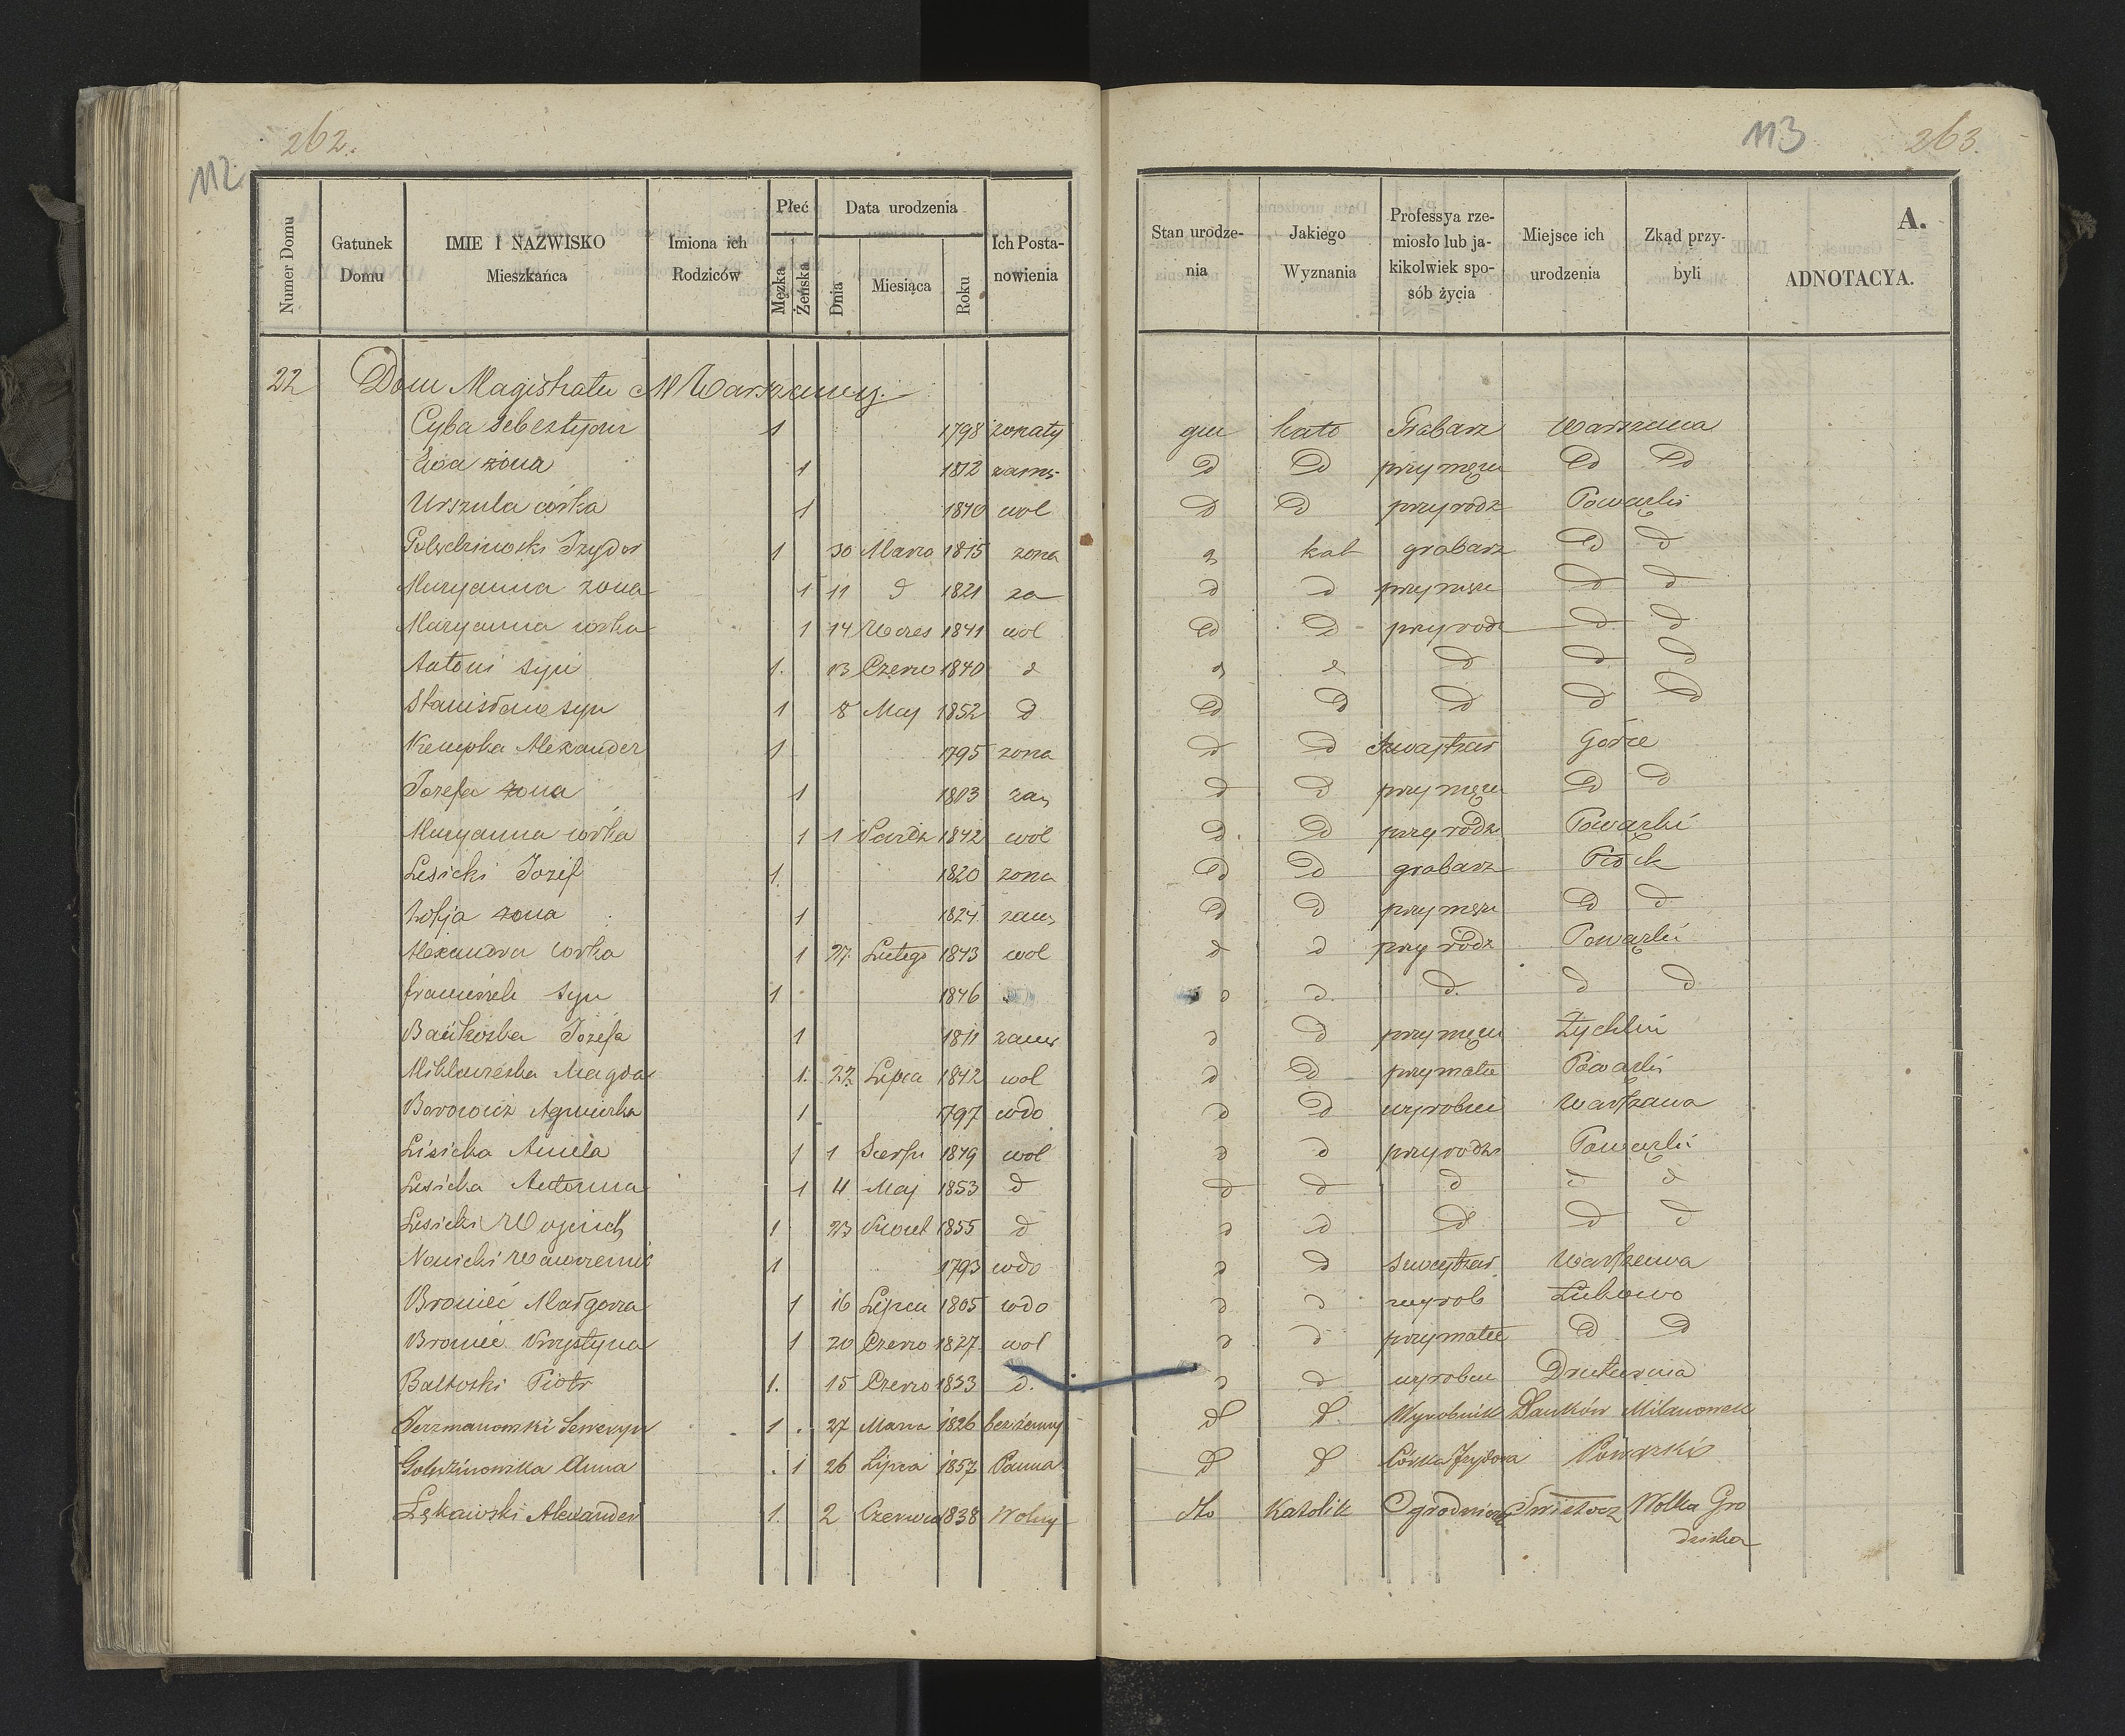 262.
112.
Numer Domu
Gatunek Domu
IMIE I NAZWISKO Mieszkańca
Imiona ich Rodziców
Płeć
Męzka
Żeńska
Data urodzenia
Dnia
Miesiąca
Roku
Ich Postanowienia
113
263.
A.
Stan urodzenia
Jakiego Wyznania
Professya rzemiosło lub jakikolwiek sposób życia
Miejsce ich urodzenia
Zkąd przybyli
ADNOTACYA.
22 Dom Magistratu M Warszawy
Cyba Sebestyan 1 1798 zonaty gm kato Grabarz Warszawa
Ewa żona 1 1812 zamę d d przy mężu d d
Urszula córka 1 1840 wol d d przy rodz Powązki
Izydor 1 30 Marca 1815 zona g kat grabarz d d
Maryanna zona 1 11 d 1821 za d d przy mężu d d
Maryanna córka 1 14 Wrzes 1841 wol d d przy rodz d d
Antoni syn 1. 13 Czerw 1840 d d d d d d
Stanisław syn 1 8 Maj 1852 d d d d d d
Kempka Alexander 1 1795 zona d d szwajcar Górce
Jozefa żona 1 1803 zam d d przy mężu d d
Maryanna córka 1 1 Pazdz 1842 wol d d przy rodz Powązki
Lesicki Jozef 1. 1820 zona d d grabarz Płock
Zofja żona 1 1824 zam d d przy mężu d d
Alexandra corka 1 27 Lutego 1843 wol d d przy rodz Powązki
franciszek syn 1 1846 d d d. d d
Jozefa 1 1811 zam d d przy mężu Żychlin
Magda 1. 22 Lipca 1842 wol d d przy matce Powązki
Borowicz Agnieszka 1 1797 wdo d d wyrobni Warszawa
Lisicka Aniela 1 1 Sierpn 1849 wol d d przy rodz Powązki
Lesicka Antonina 1 4 Maj 1853 d d d d d d
Lesicki Wojciech 1 23 Kwiet 1855 d d d d d d
Nowicki Wawrzeniec 1 1793 wdo d d szwajcar Warszawa
Broniec Małgorza 1 16 Lipca 1805 wdo d d wyrob
Broniec Krystyna 1 20 Czerw 1827 wol d d przy matce d d
Piotr 1. 15 Czerw 1833 d. d d wyrobn
Jerzmanowski Seweryn 1 . 27 Marca 1826 bezżenny d d. Wyrobnik Milanowek
Anna . 1 26 Lipca 1857 Panna d d Córka Izydora Powązki
Łękawski Alexander 1. 2 Czerwca 1838 Wolny dto Katolik Ogrodniczek Wolka Gro
dziska